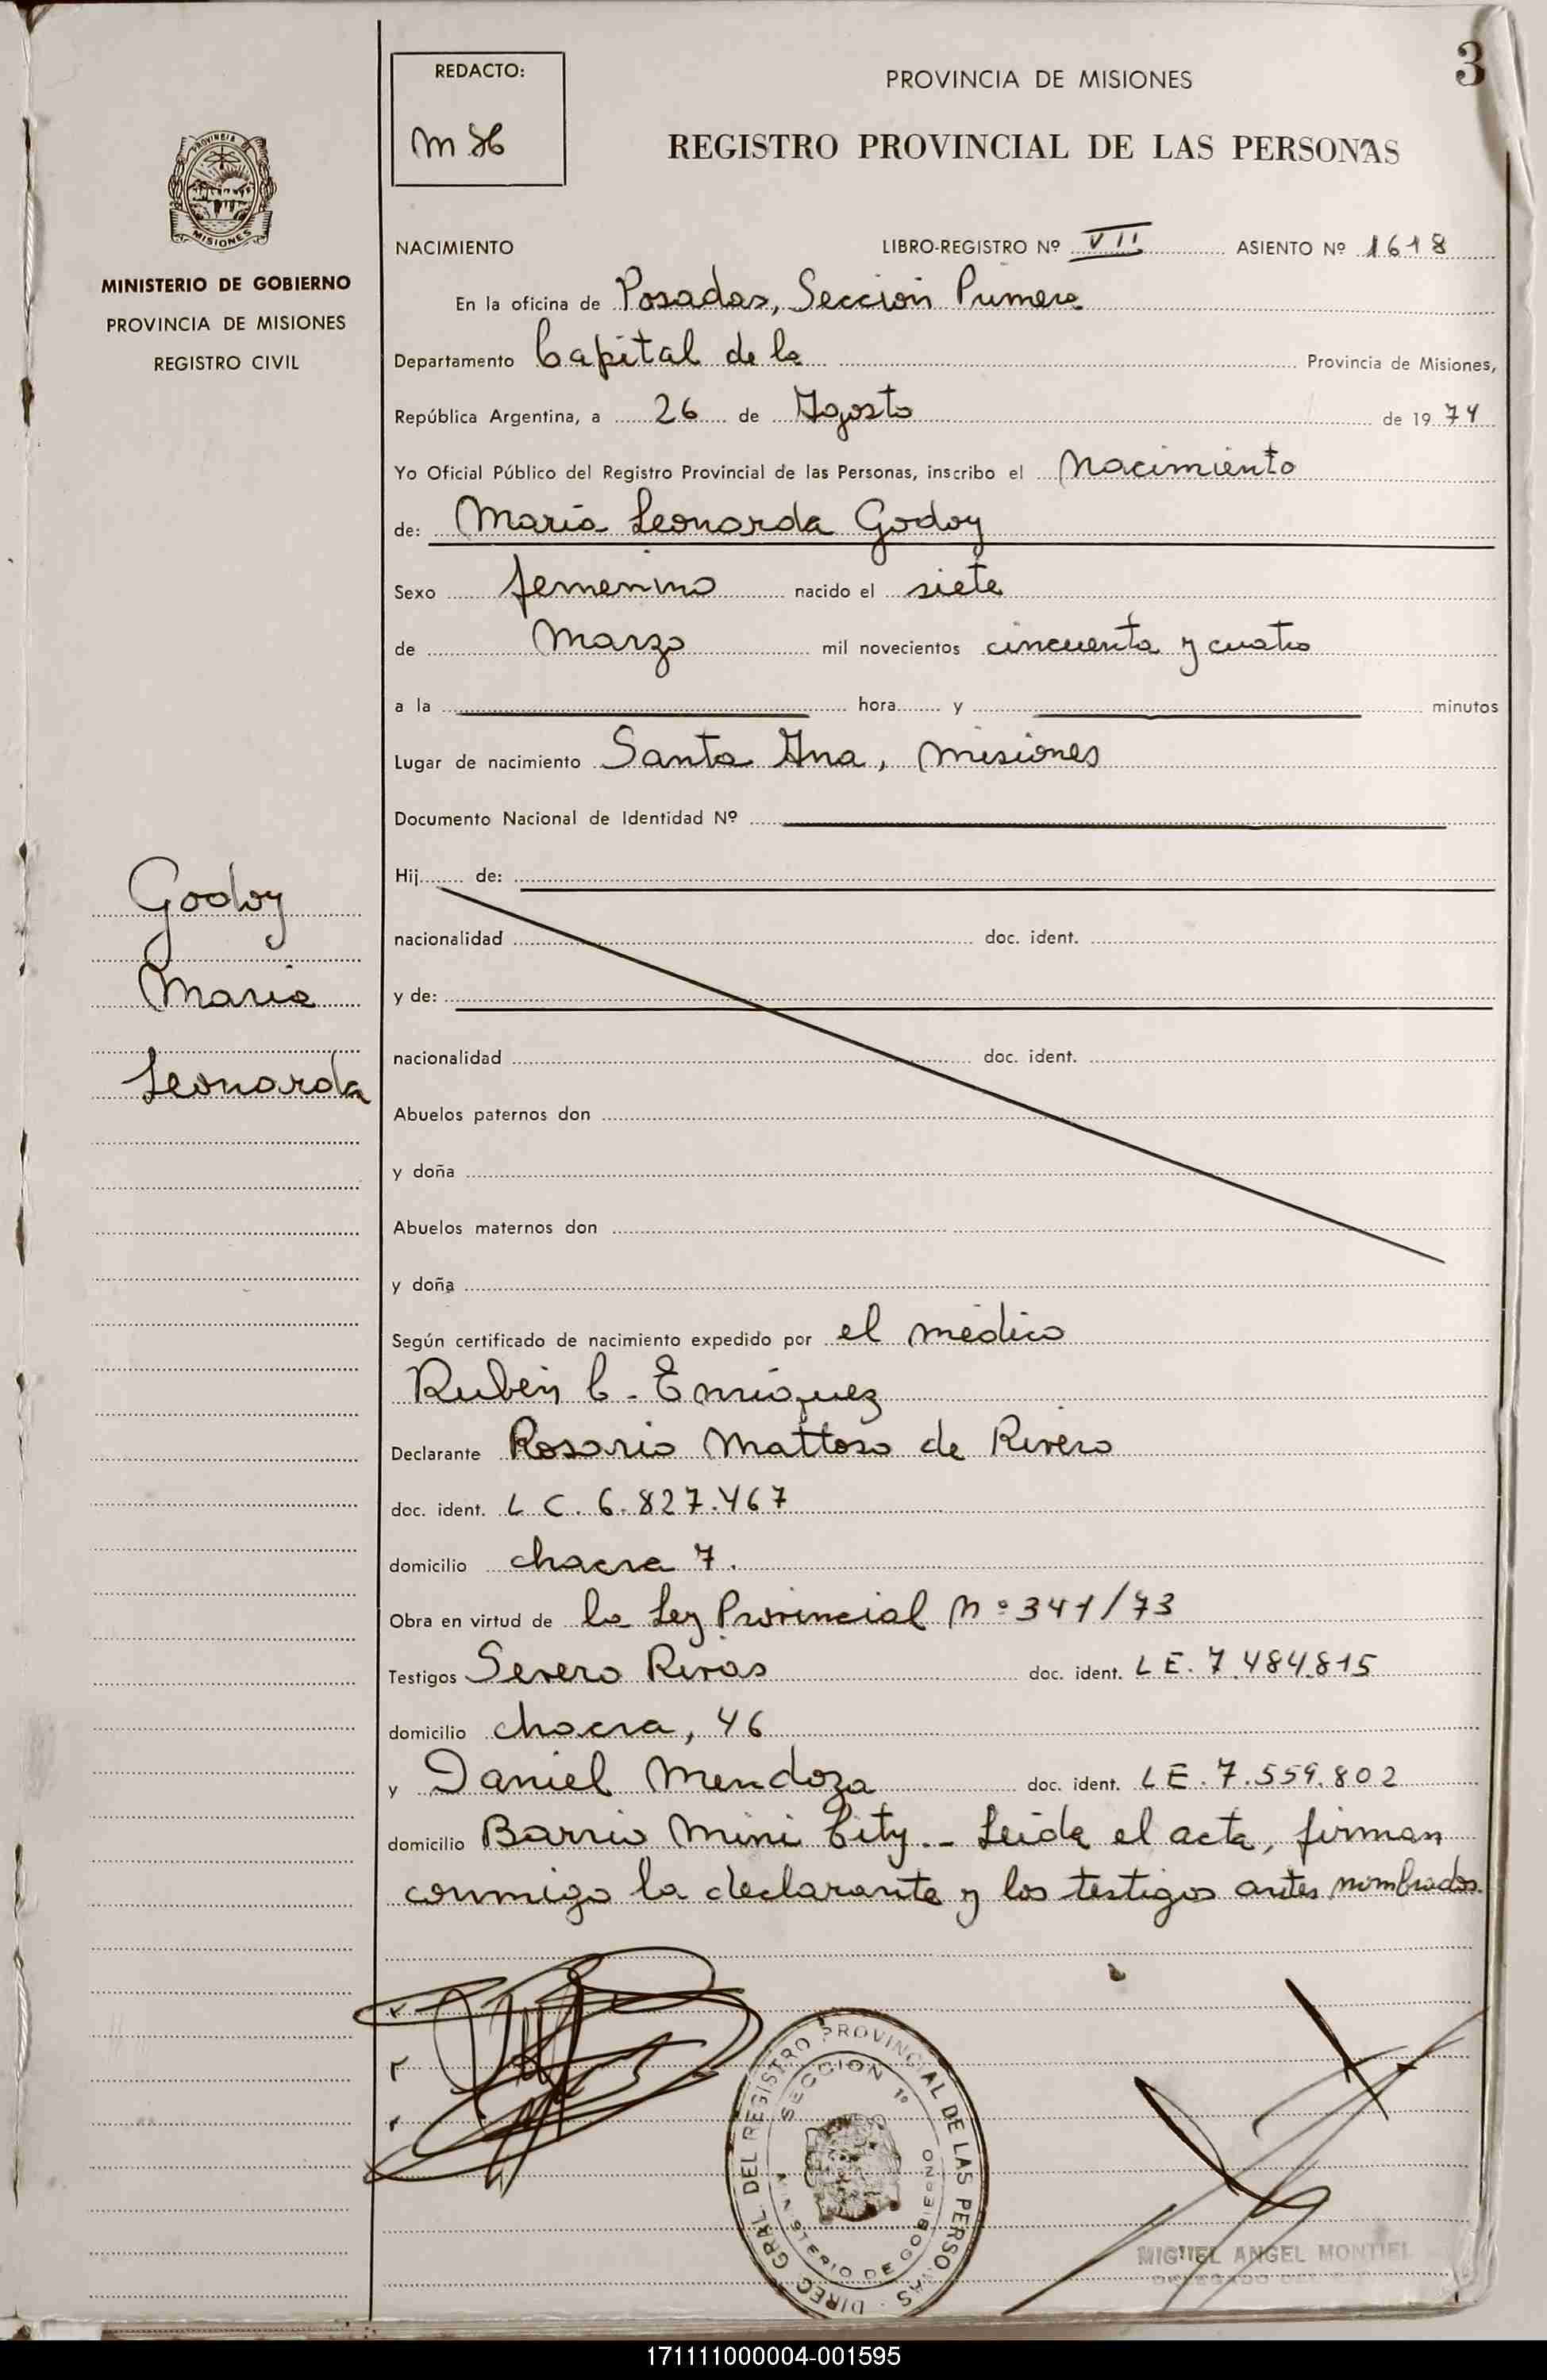 3
REDACTO:
PROVINCIA DE MISIONES
REGISTRO PROVINCIAL DE LAS PERSONAS
PROVINCIA
MISIONES
MINISTERIO DE GOBIERNO
PROVINCIA DE MISIONES
REGISTRO CIVIL
NACIMIENTO LIBRO-REGISTRO Nº VII ASIENTO Nº 1618
En la oficina de Posadas, Sección Primera
Departamento Capital de la Provincia de Misiones,
República Argentina, a 26 de Agosto de 1974
Yo Oficial Público del Registro Provincial de las Personas, inscribo el Nacimiento
de: María Leonarda Godoy
Sexo femenino nacido el siete
de Marzo mil novecientos cincuenta y cuatro
a la hora y minutos
Lugar de nacimiento Santa Ana, Misiones
Documento Nacional de Identidad Nº
Godoy
Maria
Leonarda
Hij de:
nacionalidad doc. ident.
y de:
nacionalidad doc. ident.
Abuelos paternos don
y doña
Abuelos maternos don
y doña
Según certificado de nacimiento expedido por el médico
Rubén C. Enriquez
Declarante Rosario Mattoso de Rivero
doc. ident. L C. 6.827.467
domicilio chacra 7.
Obra en virtud de la Ley Provincial Nº 341/73
Testigos Severo Rivas doc. ident. L E. 7.484.815
domicilio chacra, 46
y Daniel Mendoza doc. ident. L E. 7.559.802
domicilio Barrio Mini City.- Leida el acta, firman
conmigo la declarante y los testigos antes nombrados.
DIREC. GRAL. DEL REGISTRO PROVINCIAL DE LAS PERSONAS
SECCION 1º
MINISTERIO DE GOBIERNO
MIGUEL ANGEL MONTIEL
171111000004-001595